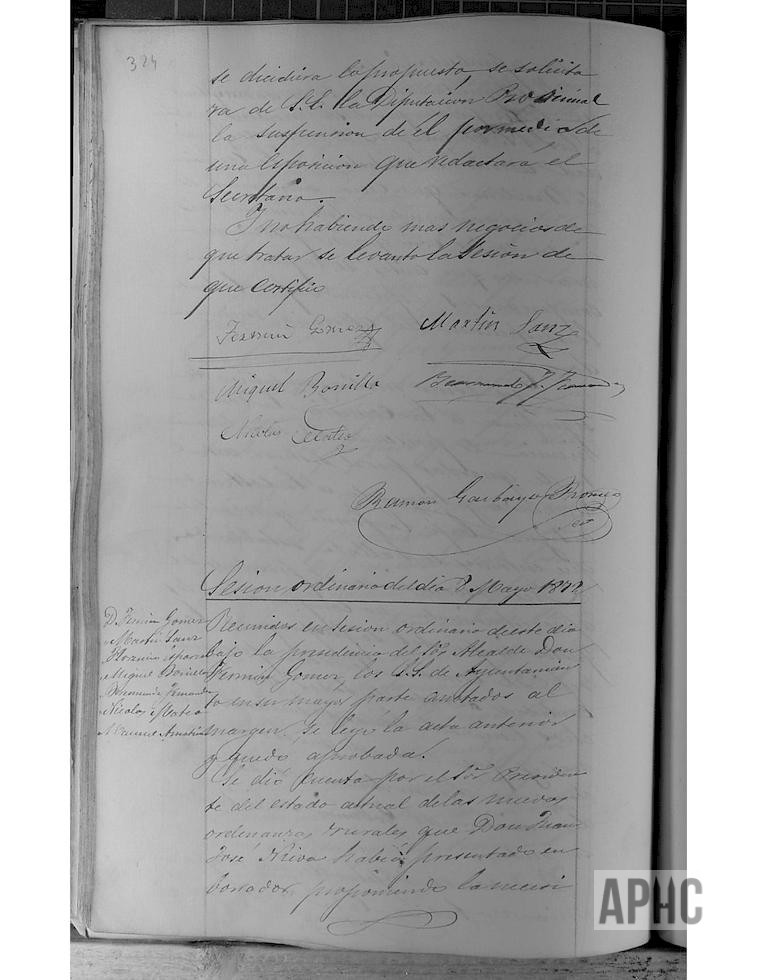 324
se decidiera lo propuesto, se solicita
ra de S.E. la Diputacion Provincial
la suspension de él por medio de
una esposicion que redactará el
Secretario.
Y no habiendo mas negocios de
que tratar se levanto la Sesion de
que Certifico
Fermin Gomez
Martin Sanz
Miguel Bonilla
Nicolas Mateo
Ramon Garbayo
Sesion ordinaria del dia 8 Mayo
D. Fermin Gomez
Martin Sanz
Miguel Bonilla
Nicolas Mateo
Manuel
Reunidos en Sesion ordinaria de este dia
bajo la presidencia del Sor. Alcalde Don
Fermin Gomez, los S.S. de Ayuntamien
to en su mayor parte anotados al
margen, se leyo la acta anterior
y quedó aprobada.
Se dió cuenta por el Sor. Presiden
te del estado actual de las nuevas
ordenanzas rurales que Don Juan
José habia presentado en
borrador, proponiendo la
APHC